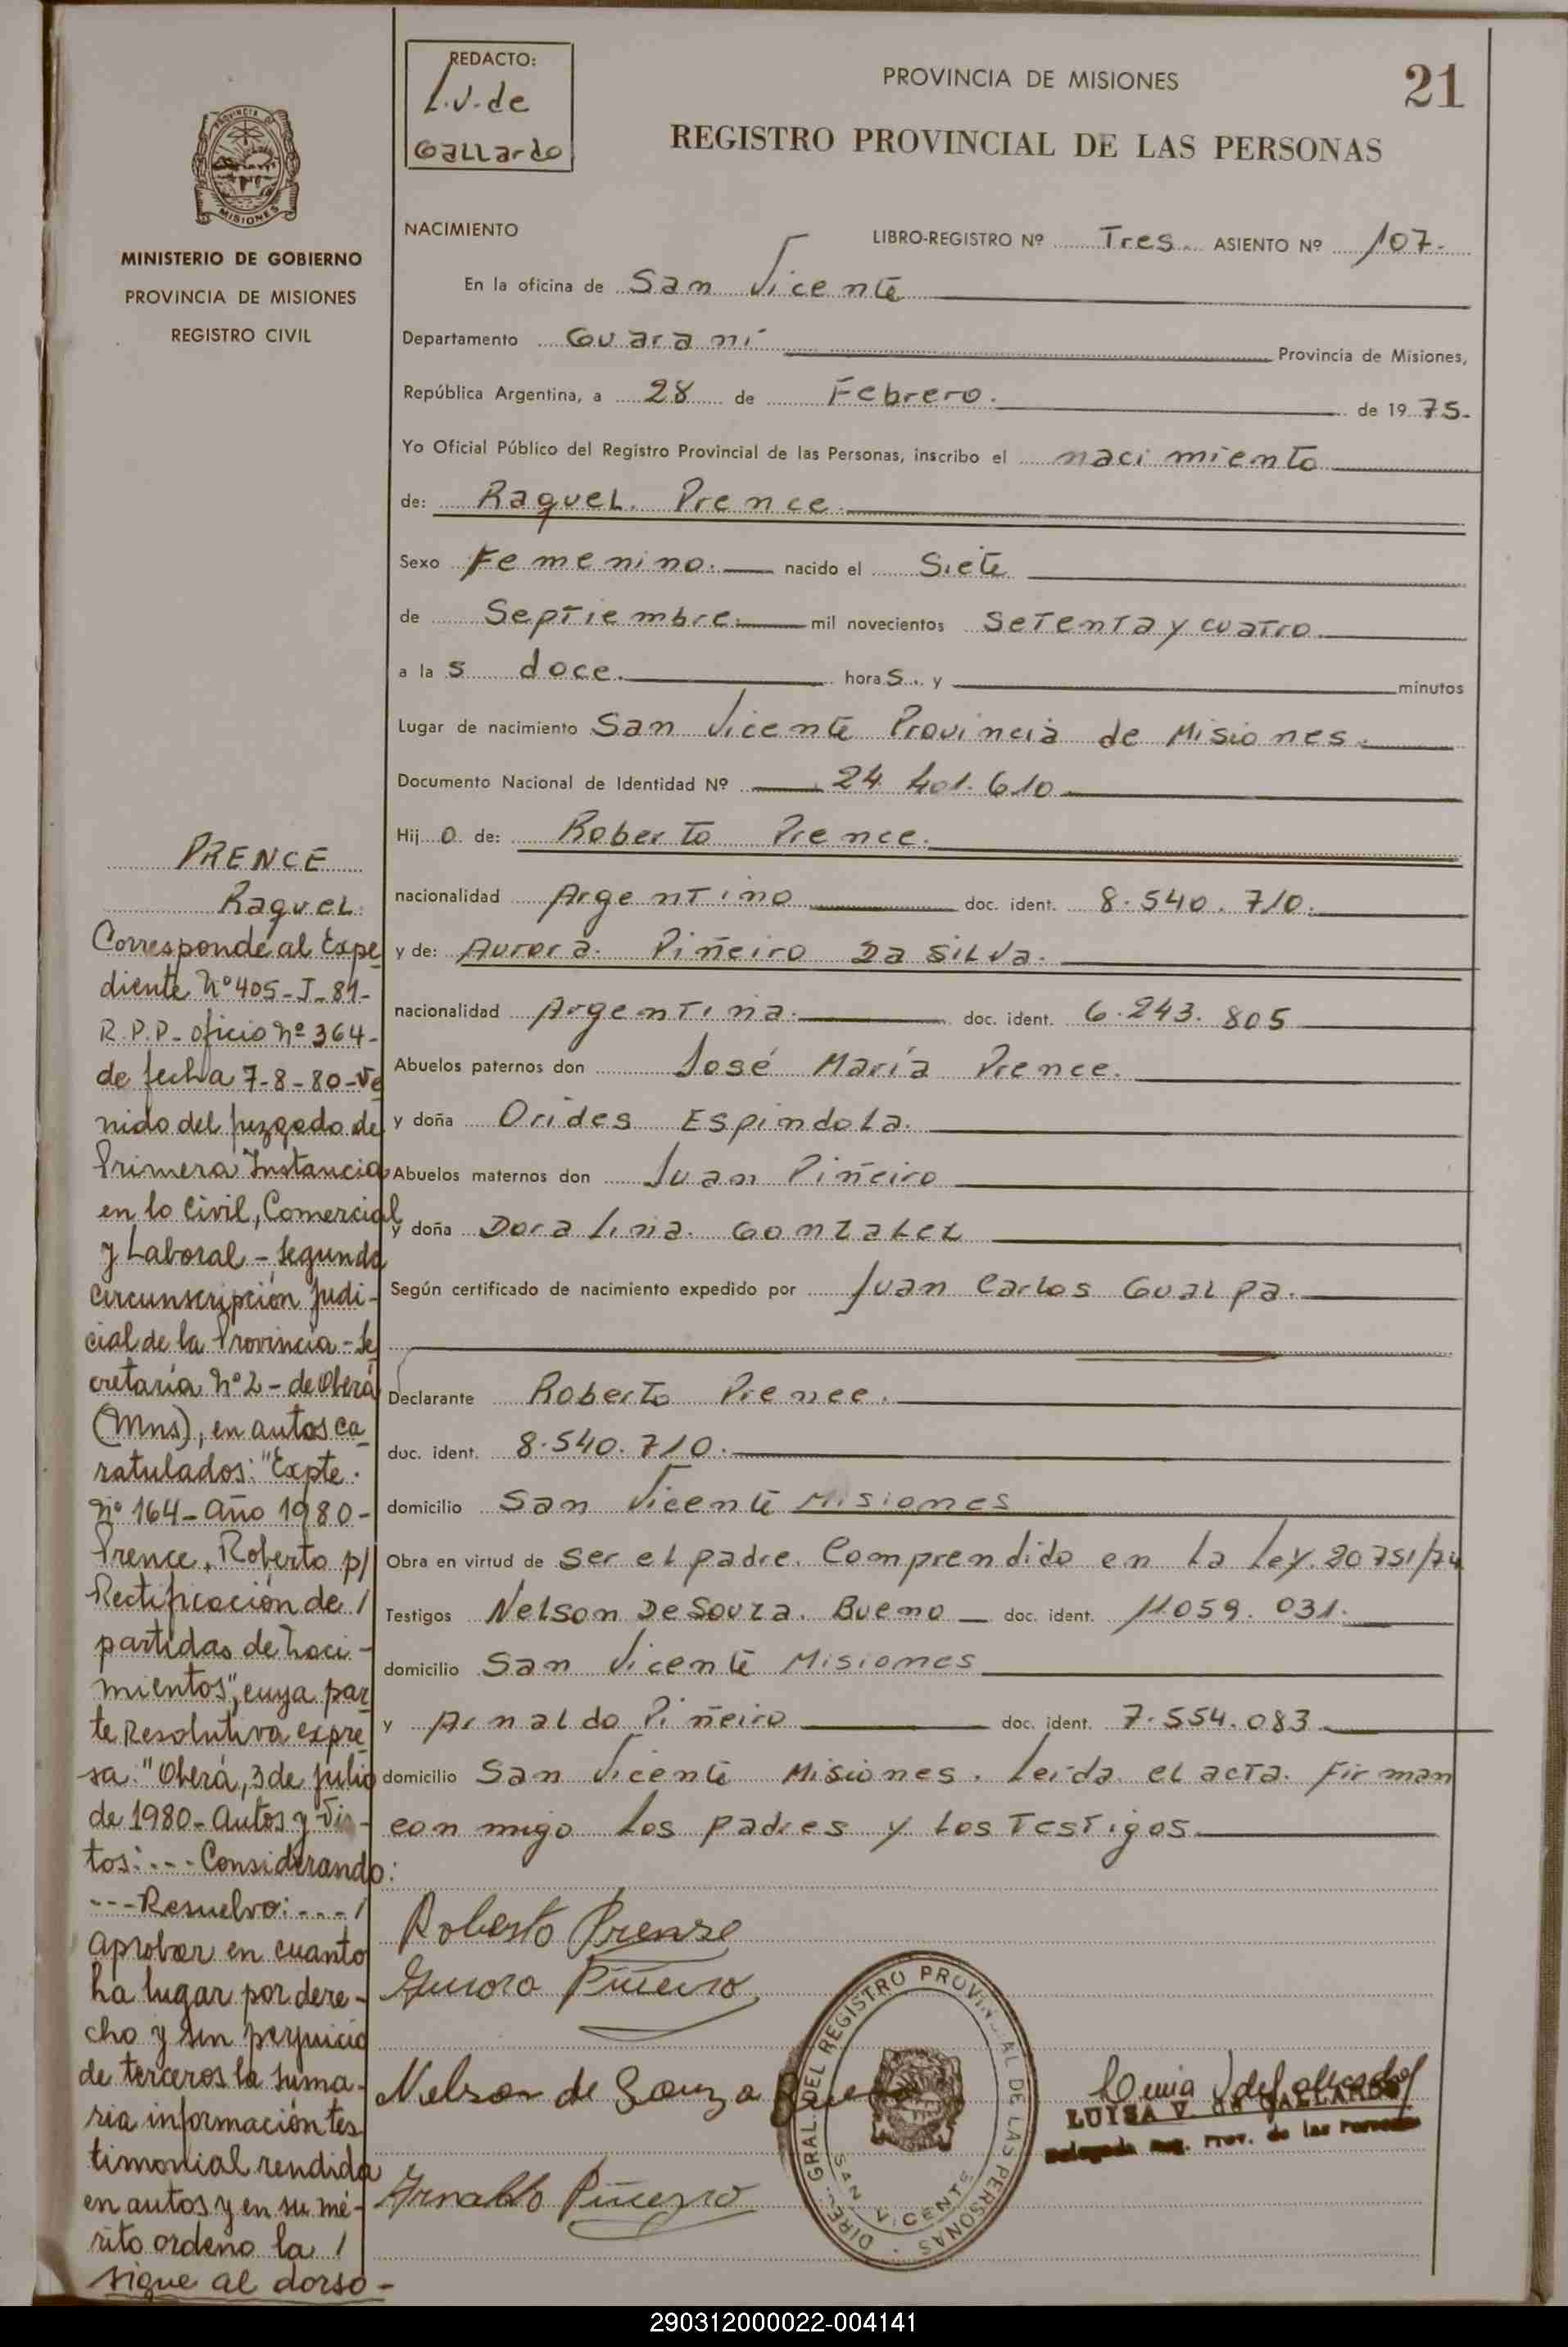 REDACTO:
L.V. de
Gallardo
PROVINCIA DE MISIONES
21
REGISTRO PROVINCIAL DE LAS PERSONAS
PROVINCIA DE
MISIONES
MINISTERIO DE GOBIERNO
PROVINCIA DE MISIONES
REGISTRO CIVIL
NACIMIENTO
LIBRO-REGISTRO Nº Tres. ASIENTO Nº 107.
En la oficina de San Vicente
Departamento Guaraní Provincia de Misiones,
República Argentina, a 28 de Febrero. de 1975.
Yo Oficial Público del Registro Provincial de las Personas, inscribo el nacimiento
de: Raquel. Prence.
Sexo Femenino. nacido el Siete
de Septiembre. mil novecientos setenta y cuatro.
a las doce. horas. y minutos
Lugar de nacimiento San Vicente Provincia de Misiones.
Documento Nacional de Identidad Nº 24.401.610
Hijo de: Roberto Prence.
nacionalidad Argentino doc. ident. 8.540.710.
y de: Aurora. Piñeiro Da Silva.
nacionalidad Argentina. doc. ident. 6.243.805
Abuelos paternos don José María Prence.
y doña Orides Espindola.
Abuelos maternos don Juan Piñeiro
y doña Doralina. Gonzalez
Según certificado de nacimiento expedido por Juan Carlos Gualpa.
Declarante Roberto Prence.
doc. ident. 8.540.710.
domicilio San Vicente Misiones
Obra en virtud de ser el padre. Comprendido en la Ley. 20751/74
Testigos Nelson De Souza. Bueno doc. ident. 11059.031.
domicilio San Vicente Misiones
y Arnaldo Piñeiro doc. ident. 7.554.083
domicilio San Vicente Misiones. Leída el acta. Firman
conmigo los padres y los testigos
Roberto Prense
Aurora Piñeiro
Nelson de Souza Bueno
Arnaldo Piñeyro
DIREC. GRAL. DEL REGISTRO PROVINCIAL DE LAS PERSONAS
SAN VICENTE
LUISA V. de GALLARDO
Delegada Reg. Prov. de las Personas
PRENCE
Raquel
Corresponde al Expe
diente Nº 405-J-81-
R.P.P- oficio nº 364-
de fecha 7-8-80-ve
nido del Juzgado de
Primera Instancia
en lo Civil, Comercial
y Laboral - Segunda
circunscripción Judi-
cial de la Provincia - Se
cretaría Nº 2 - de Oberá
(Mns), en autos ca
ratulados: "Expte.
nº 164 - Año 1980 -
Prence, Roberto p/
Rectificación de /
partidas de naci-
mientos", cuya par
te Resolutiva expre
sa: "Oberá, 3 de julio
de 1980 - Autos y Vis-
tos: --- Considerando:
--- Resuelvo: --- /
Aprobar en cuanto
ha lugar por dere-
cho y sin perjuicio
de terceros la suma-
ria información tes
timonial rendida
en autos y en su mé-
rito ordeno la /
sigue al dorso -
290312000022-004141